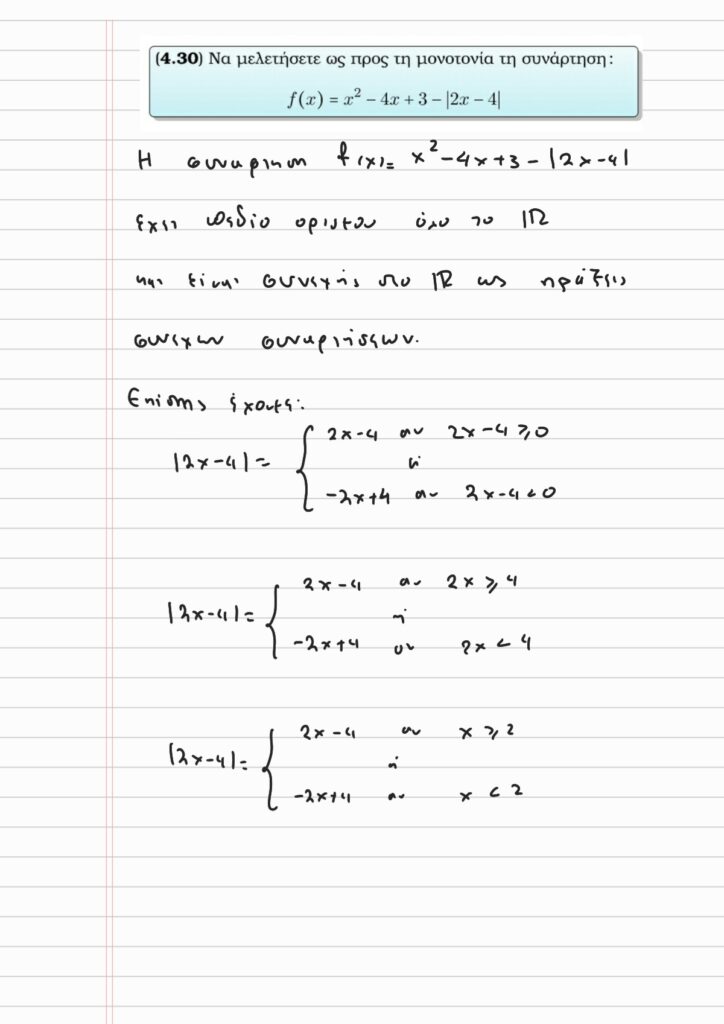 (4.30) Να μελετήσετε ως προς τη μονοτονία τη συνάρτηση:
f(x) = x² − 4x + 3 − |2x − 4|
Η συναρτηση f(x)= x²-4x+3-|2x-4|
έχει πεδίο ορισμού όλο το ℝ
και είναι συνεχής στο ℝ ως πράξεις
συνεχων συναρτήσεων.
Επίσης έχουμε:
2x-4 αν 2x-4 ≥ 0
|2x-4| = { ή
-2x+4 αν 2x-4 < 0
2x-4 αν 2x ≥ 4
|2x-4| = { ή
-2x+4 αν 2x < 4
2x-4 αν x ≥ 2
|2x-4| = { ή
-2x+4 αν x < 2